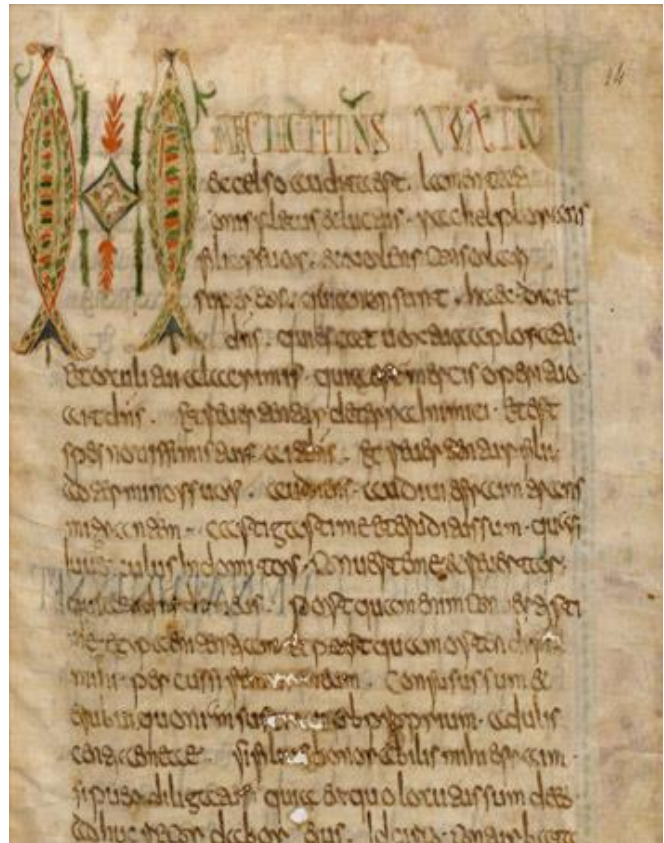 HAEC DICIT DNS VOX IN
excelso audita est. lamenta
tionis fletus & luctus. rachel plorantis
filios suos. & nolens consolari
super eos. quia non sunt. haec dicit
dns. quiescat uox tua a plora
et oculi tui a lacrimis. quia est mercis operi tuo
ait dns. et reuertentur de terra inimici. et est
spes nouissimis tuis ait dns. et reuertentur filii
ad terminos suos. audiens audiui efrem trans
migrantem. castigasti me et eruditus sum. quasi
iuuenculus indomitus. conuerte me & reuertar.
quia dns deus. postquam enim conuertisti
me egi penitentiam et postquam ostendisti
mihi. percussi meum. confusus sum &
erubui. quoniam sustinui obpropprium. adulis
centiae. si filius honorabilis mihi efrem.
si puer quia ex quo locutus sum de eo
adhuc recordabor eius. idcirco
14